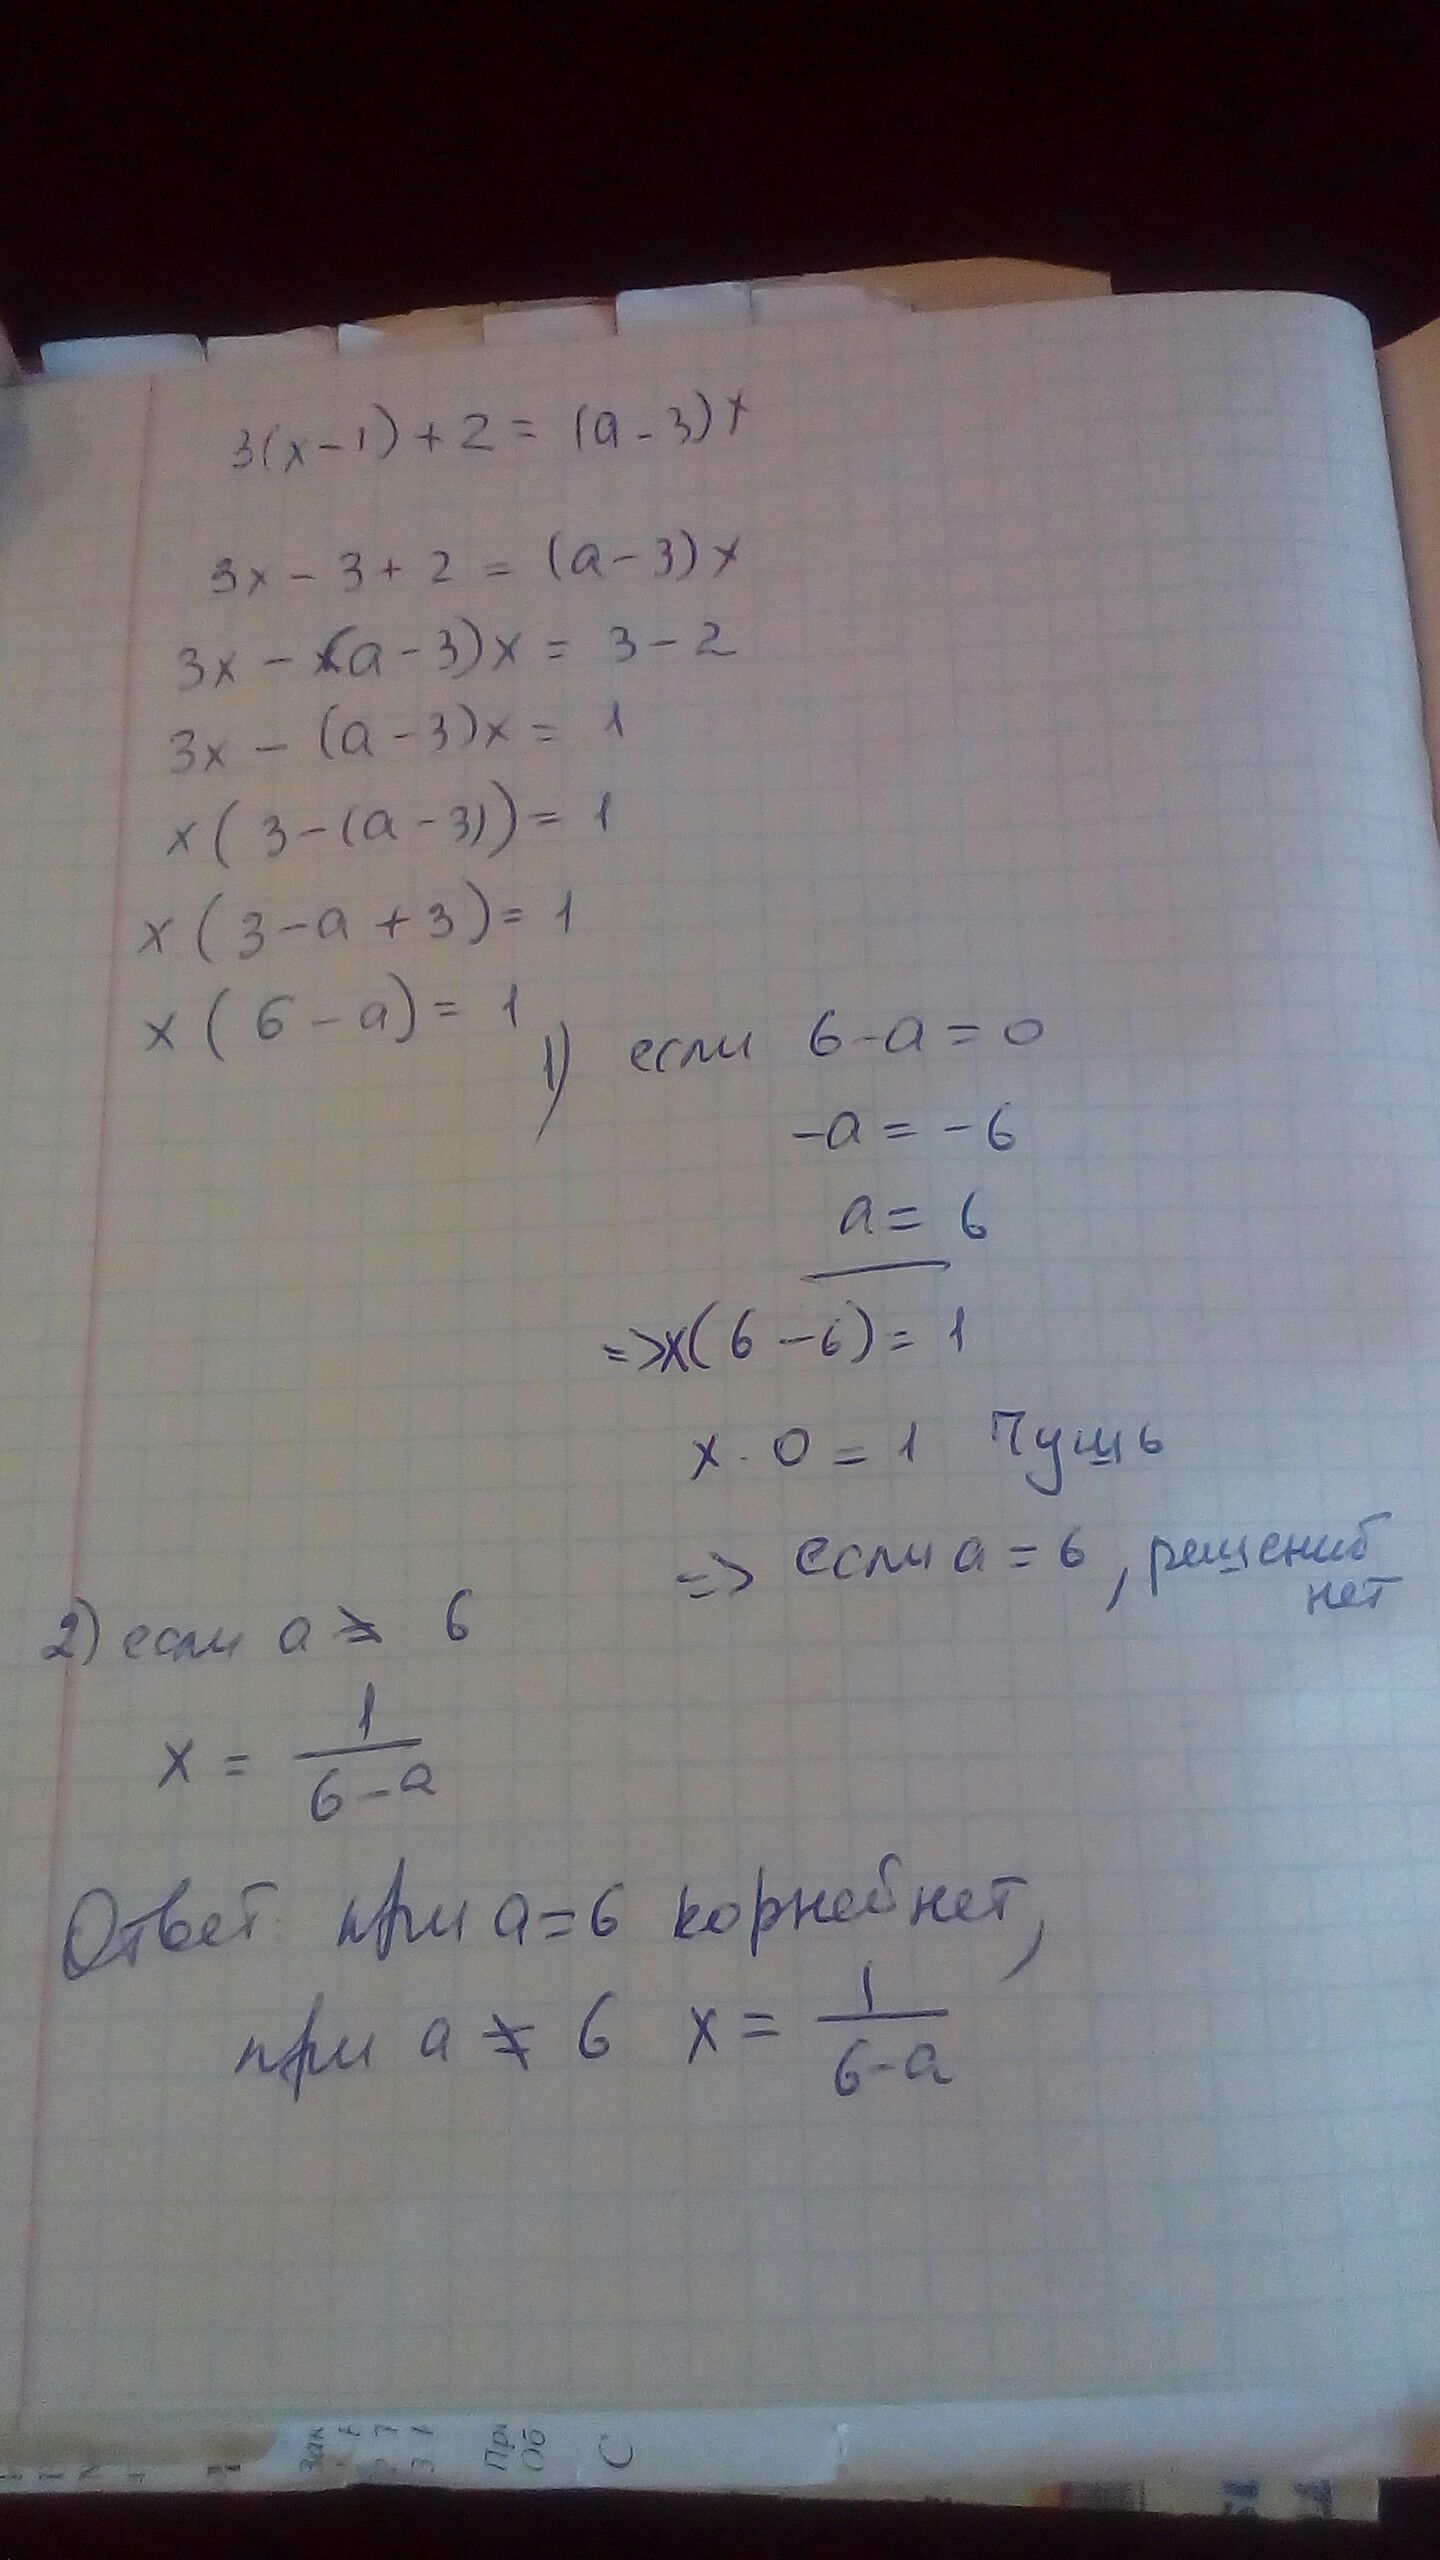 3(x-1)+2=(a-3)x
3x-3+2=(a-3)x
3x-(a-3)x=3-2
3x-(a-3)x=1
x(3-(a-3))=1
x(3-a+3)=1
x(6-a)=1
1) если 6-a=0
-a=-6
a=6
=>x(6-6)=1
x·0=1 Чушь
=> если a=6, решений
нет
2) если a≠6
x=1/(6-a)
Ответ: при a=6 корней нет,
при a≠6 x=1/(6-a)
Зак
Пр
Об
С